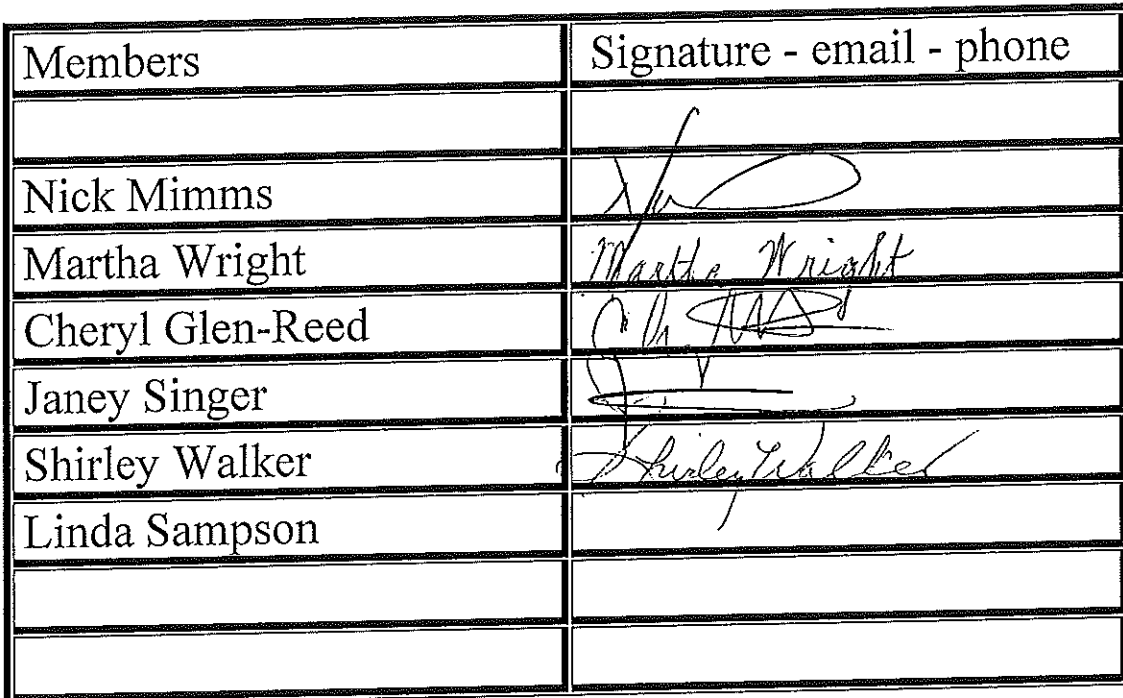 Members Signature - email - phone
Nick Mimms
Martha Wright Martha Wright
Cheryl Glen-Reed
Janey Singer
Shirley Walker Shirley Walker
Linda Sampson